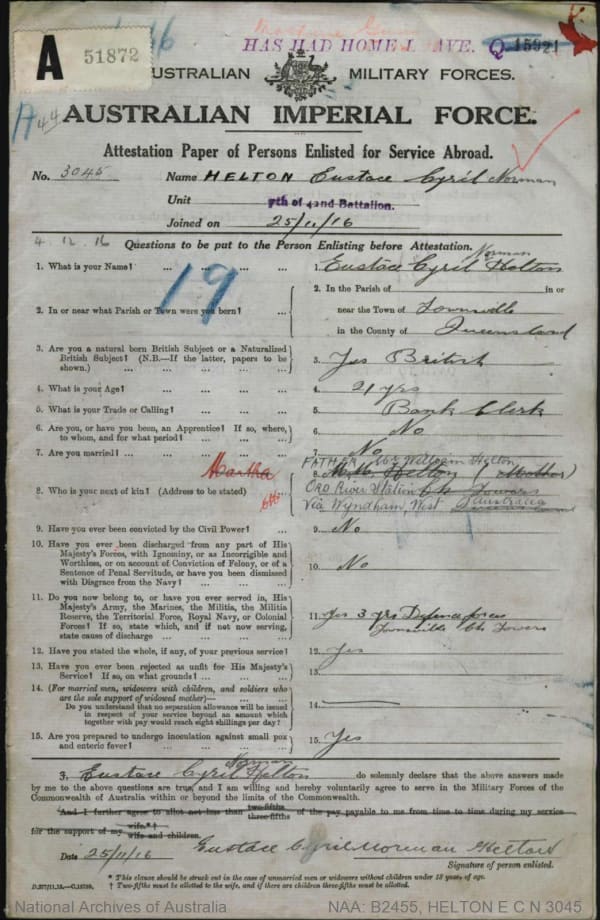 16
HAS HAD HOME L AVE. Q. 15921
A 51872
AUSTRALIAN MILITARY FORCES.
A 44
AUSTRALIAN IMPERIAL FORCE.
Attestation Paper of Persons Enlisted for Service Abroad.
No. 3045 Name HELTON Eustace Cyril Norman
Unit 7th of 42nd Battalion.
Joined on 25/11/16
4.12.16 Questions to be put to the Person Enlisting before Attestation.
1. What is your Name? ... ... ... ... 1. Eustace Cyril Norman Helton
19
2. In or near what Parish or Town were you born? ... 2. In the Parish of in or
near the Town of Townsville
in the County of Queensland
3. Are you a natural born British Subject or a Naturalized
British Subject? (N.B.—If the latter, papers to be
shown.) ... ... ... ... 3. Yes British
4. What is your Age? ... ... ... ... 4. 21 yrs
5. What is your Trade or Calling? ... ... ... 5. Bank Clerk
6. Are you, or have you been, an Apprentice? If so, where,
to whom, and for what period? ... ... ... 6. No
7. Are you married? ... ... ... ... 7. No
Martha
8. Who is your next of kin? (Address to be stated) ... 8. FATHER William Helton
M. M. Helton (Mother)
ORD River Station Ch Towers
Via Wyndham, West Australia Queensland
9. Have you ever been convicted by the Civil Power? ... 9. No
10. Have you ever been discharged from any part of His
Majesty's Forces, with Ignominy, or as Incorrigible and
Worthless, or on account of Conviction of Felony, or of a
Sentence of Penal Servitude, or have you been dismissed
with Disgrace from the Navy? ... ... ... 10. No
11. Do you now belong to, or have you ever served in, His
Majesty's Army, the Marines, the Militia, the Militia
Reserve, the Territorial Force, Royal Navy, or Colonial
Forces? If so, state which, and if not now serving,
state cause of discharge ... ... ... 11. Yes 3 yrs Defence forces
Townsville Ch Towers
12. Have you stated the whole, if any, of your previous service? 12. Yes
13. Have you ever been rejected as unfit for His Majesty's
Service? If so, on what grounds? ... ... ... 13.
14. (For married men, widowers with children, and soldiers who
are the sole support of widowed mother)—
Do you understand that no separation allowance will be issued
in respect of your service beyond an amount which
together with pay would reach eight shillings per day? 14.
15. Are you prepared to undergo inoculation against small pox
and enteric fever? ... ... ... ... 15. Yes
I, Eustace Cyril Norman Helton do solemnly declare that the above answers made
by me to the above questions are true, and I am willing and hereby voluntarily agree to serve in the Military Forces of the
Commonwealth of Australia within or beyond the limits of the Commonwealth.
*And I further agree to allot not less than two-fifths three-fifths of the pay payable to me from time to time during my service
for the support of my wife.*† wife and children.
Date 25/11/16 Eustace Cyril Norman Helton
Signature of person enlisted.
* This clause should be struck out in the case of unmarried men or widowers without children under 18 years of age.
† Two-fifths must be allotted to the wife, and if there are children three-fifths must be allotted.
National Archives of Australia NAA: B2455, HELTON E C N 3045